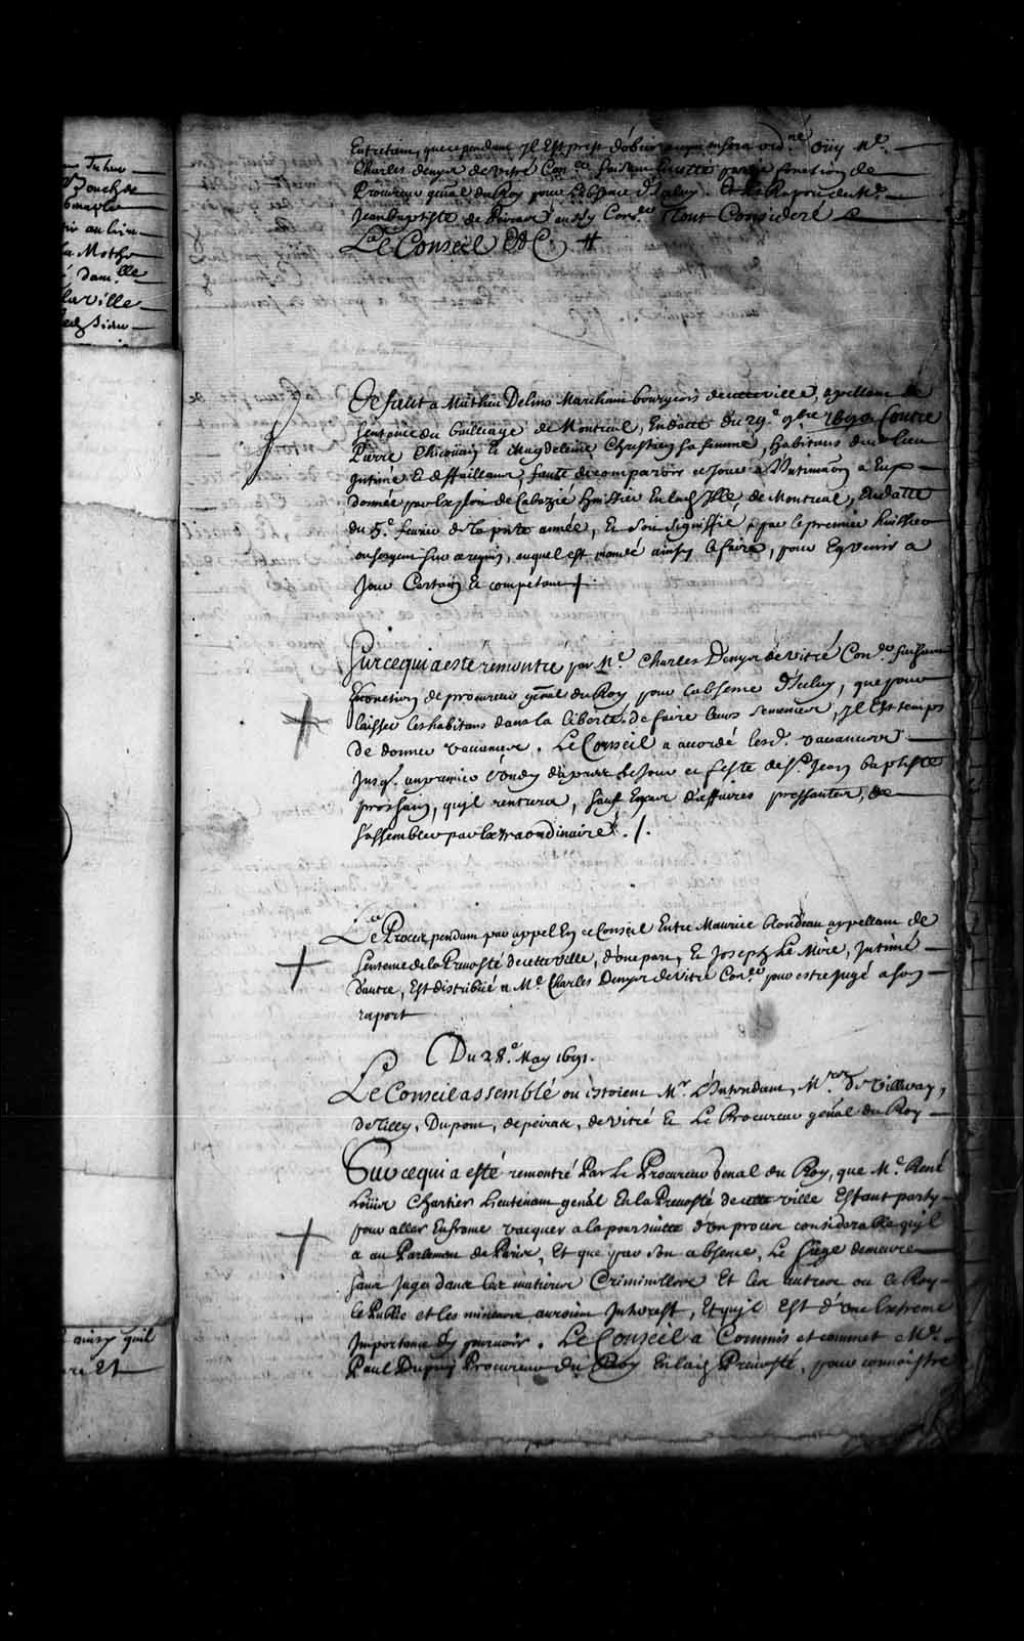 Tuheu
Bouchde
au lieu
La Mothe
dam.lle
La ville
Entretien, que cependant Il Est prest d'obeir a ce qui en sera ord.né Oüy M.e
Charles denys de vitré Con.er faisant Encette partie fonction de
Procureur gnãl du Roy pour L'absence d'Iceluy. Et le Raport de M.e
Jean baptiste de Peiras aussy Con.er Tout Consideré
Le Conseil &C.
Defaut a Mathieu Delino Marchant bourgeois de cette ville, apellant de
Sentence du bailliage de Montreal, En datte du 29.e 9.bre 1690 Contre
Pierre Chicouan et Magdeleine Chrestien sa femme, habitans dud. lieu
Intimé et deffaillans, faute de comparoir ce Jour a L'intimãon a Eux
donnée par Exploit de Cabazié huissier En lad. Isle de Montreal, En datte
du 5.e fevrier de la pnte année, Et soit signiffié, par le premier huissier
ou sergent sur ce requis, auquel est mandé ainsy le faire, pour Eyvenir a
Jour Certain Et competant
Sur ce qui a esté remontré par M.e Charles Denys de vitré Con.er faisant
fonction de procureur gnãl du Roy pour l'absence d'Iceluy, que pour
laisser les habitans dans la liberté de faire leurs semences, Il Est temps
de donner vacances. Le Conseil a accordé lesd. vacances
Jusq. au premier Lundy d'apres le Jour et feste de S.t Jean baptiste
prochain, quil rentrera, sauf En cas d'affaires pressantes, de
s'assembler par Extraordinaire ./.
Le Proces pendant par appel En ce Conseil Entre Maurice blondeau appellant de
Sentence de la Prevosté de cette ville, d'une part, Et Joseph Le Mire, Intimé
d'autre, Est distribué a M.e Charles Denys de Vitré Con.er pour estre jugé a son
raport
Du 28.e May 1691.
Le Conseil assemblé ou estoient M.r L'Intendant, M.rs de Villeray,
de Tilly, Dupont, de peiras, de vitré Et Le Procureur genãl du Roy
Sur ce qui a esté remontré Par Le Procureur genãl du Roy, que M.e René
Loüis Chartier Lieutenant genãl En la Prevosté de cette ville Estant party
pour aller En france vacquer a la poursuitte d'un proces considerable qu'il
a au Parlement de Paris, Et que par son absence, Le Siege demeure
sans Juge dans les matieres Criminelles Et les autres ou le Roy
le Public et les mineurs auroient Interest, Et qu'il Est d'une Extreme
Importance d'y pourvoir. Le Conseil a Commis et commet M.e
Paul Dupuy Procureur du Roy En lad. Prevosté, pour connoistre
ainsy quil
Et